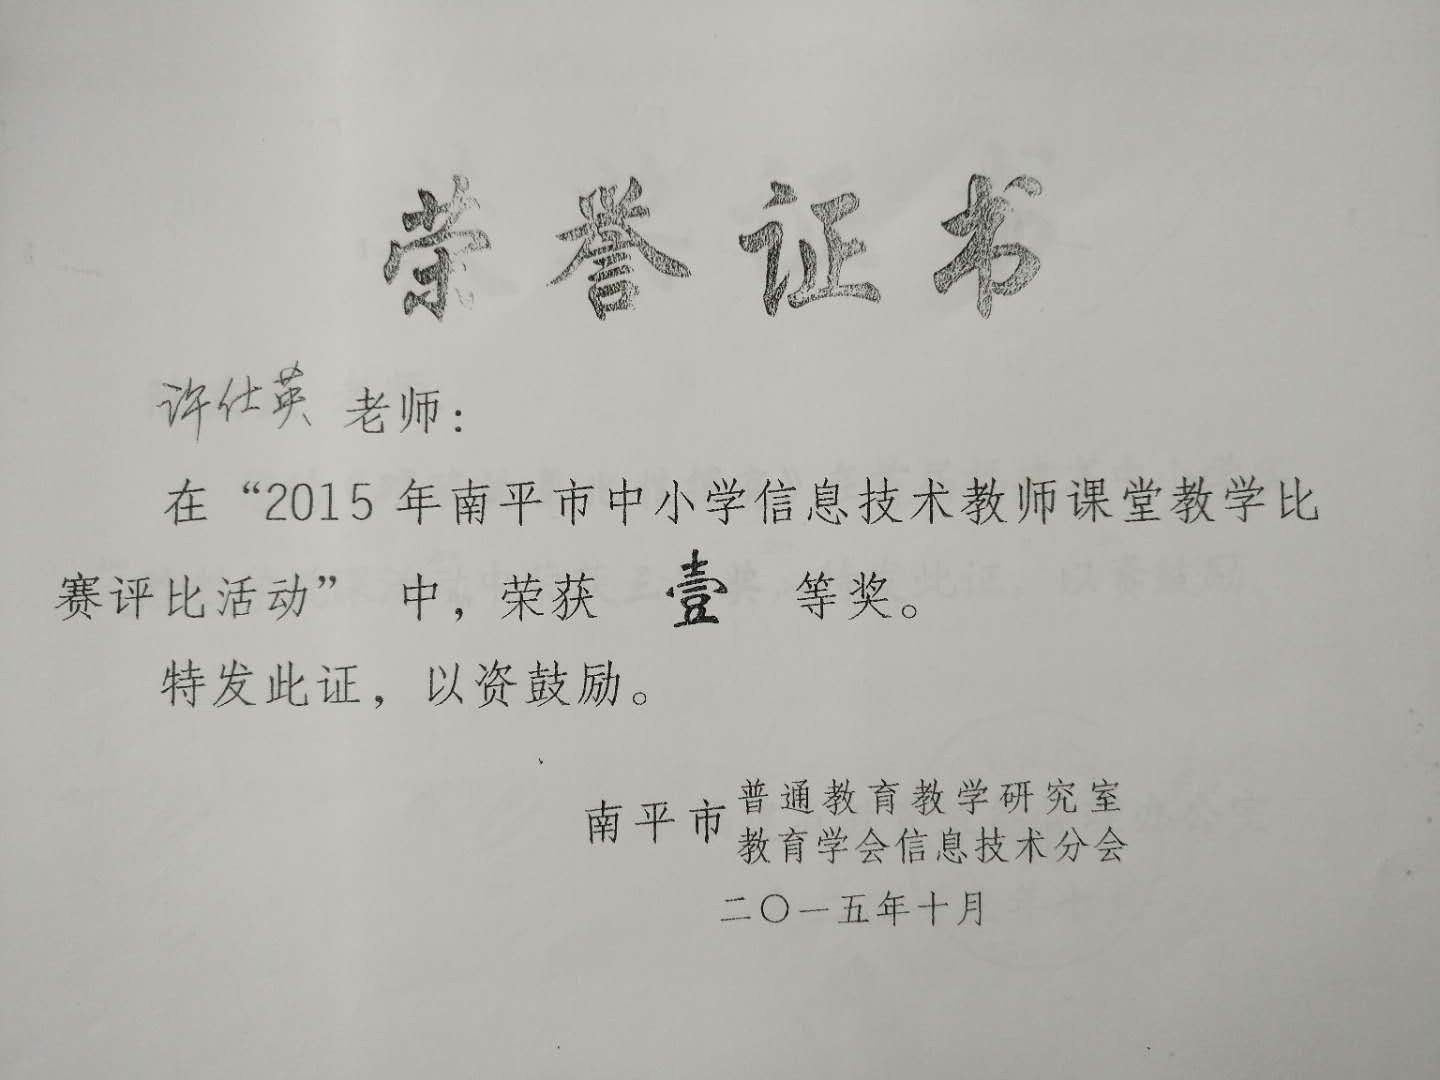 荣誉证书
许仕英 老师：
在“2015 年南平市中小学信息技术教师课堂教学比
赛评比活动” 中，荣获 壹 等奖。
特发此证，以资鼓励。
南平市 普通教育教学研究室
教育学会信息技术分会
二〇一五年十月